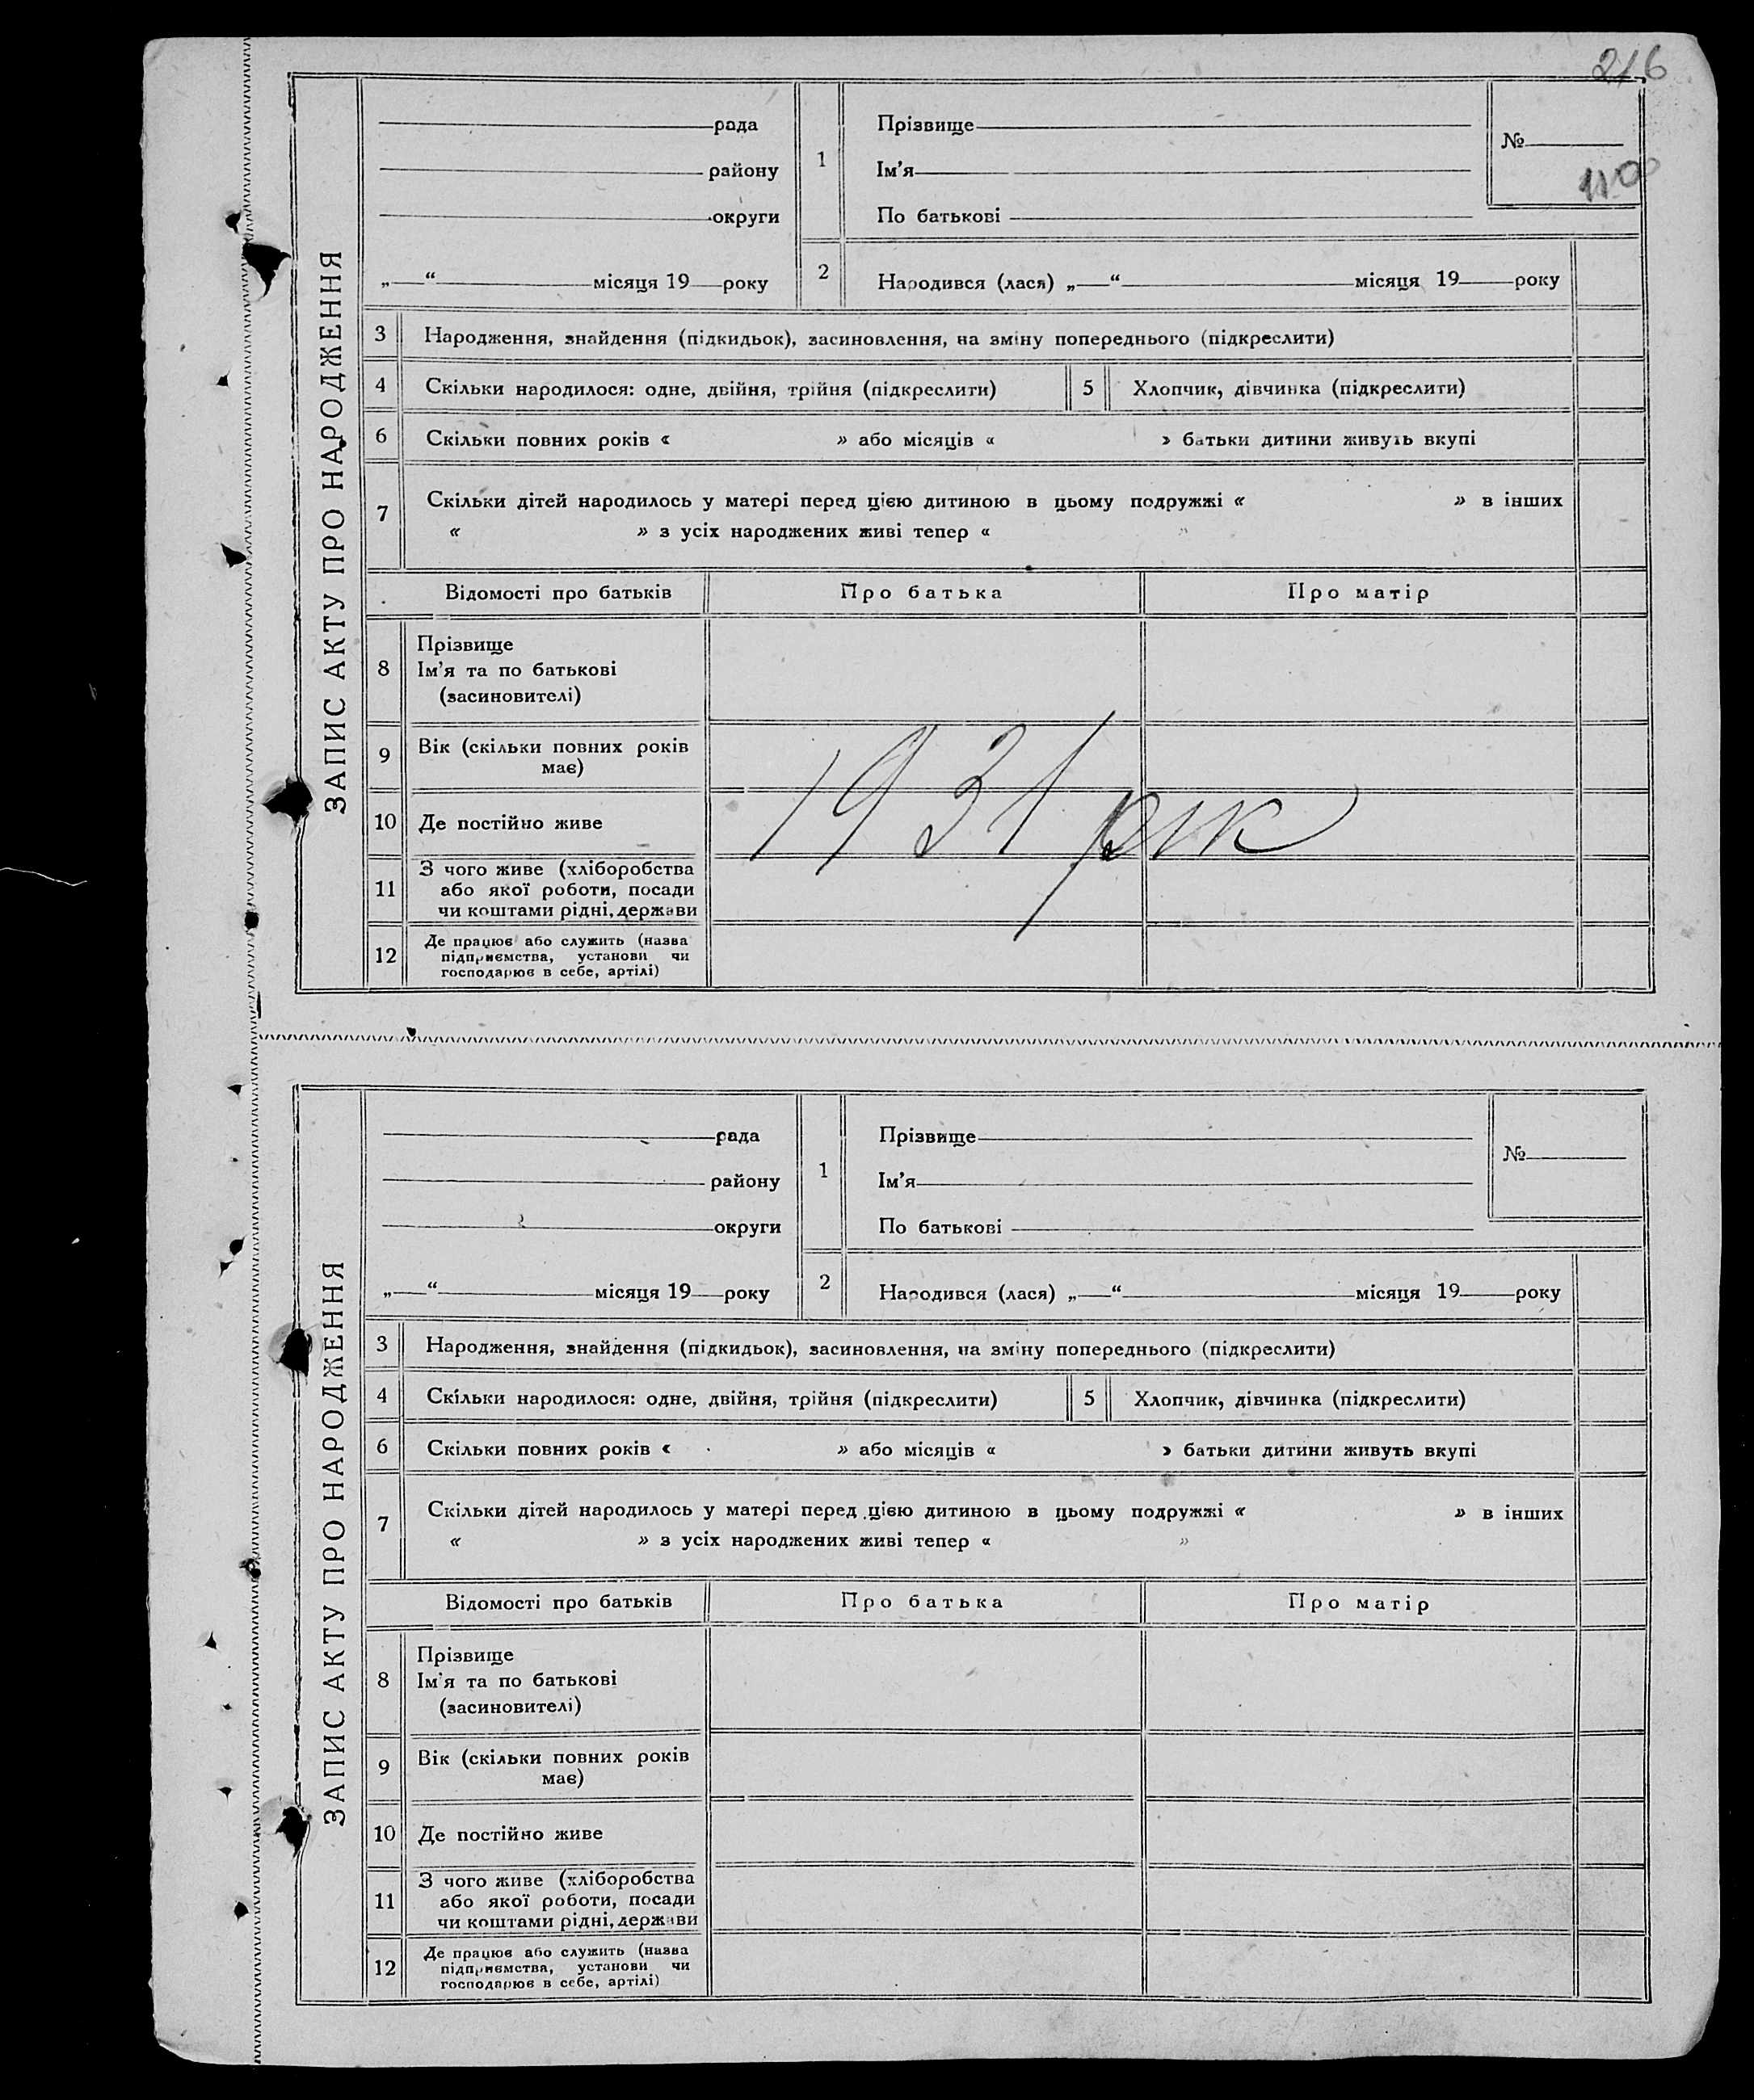 216
ЗАПИС АКТУ ПРО НАРОДЖЕННЯ
рада
району
округи
„ “ місяця 19 року
1
Прізвище
Ім’я
По батькові
№
2
Народився (лася) „ “ місяця 19 року
3 Народження, знайдення (підкидьок), засиновлення, на зміну попереднього (підкреслити)
4 Скільки народилося: одне, двійня, трійня (підкреслити) 5 Хлопчик, дівчинка (підкреслити)
6 Скільки повних років « » або місяців « » батьки дитини живуть вкупі
7 Скільки дітей народилось у матері перед цією дитиною в цьому подружжі « » в інших
« » з усіх народжених живі тепер « »
Відомості про батьків Про батька Про матір
8 Прізвище
Ім’я та по батькові
(засиновителі)
9 Вік (скільки повних років
має)
10 Де постійно живе
1931 рік
11 З чого живе (хліборобства
або якої роботи, посади
чи коштами рідні, держави
12 Де працює або служить (назва
підприємства, установи чи
господарює в себе, артілі)
ЗАПИС АКТУ ПРО НАРОДЖЕННЯ
рада
району
округи
„ “ місяця 19 року
1
Прізвище
Ім’я
По батькові
№
2
Народився (лася) „ “ місяця 19 року
3 Народження, знайдення (підкидьок), засиновлення, на зміну попереднього (підкреслити)
4 Скільки народилося: одне, двійня, трійня (підкреслити) 5 Хлопчик, дівчинка (підкреслити)
6 Скільки повних років « » або місяців « » батьки дитини живуть вкупі
7 Скільки дітей народилось у матері перед цією дитиною в цьому подружжі « » в інших
« » з усіх народжених живі тепер « »
Відомості про батьків Про батька Про матір
8 Прізвище
Ім’я та по батькові
(засиновителі)
9 Вік (скільки повних років
має)
10 Де постійно живе
11 З чого живе (хліборобства
або якої роботи, посади
чи коштами рідні, держави
12 Де працює або служить (назва
підприємства, установи чи
господарює в себе, артілі)